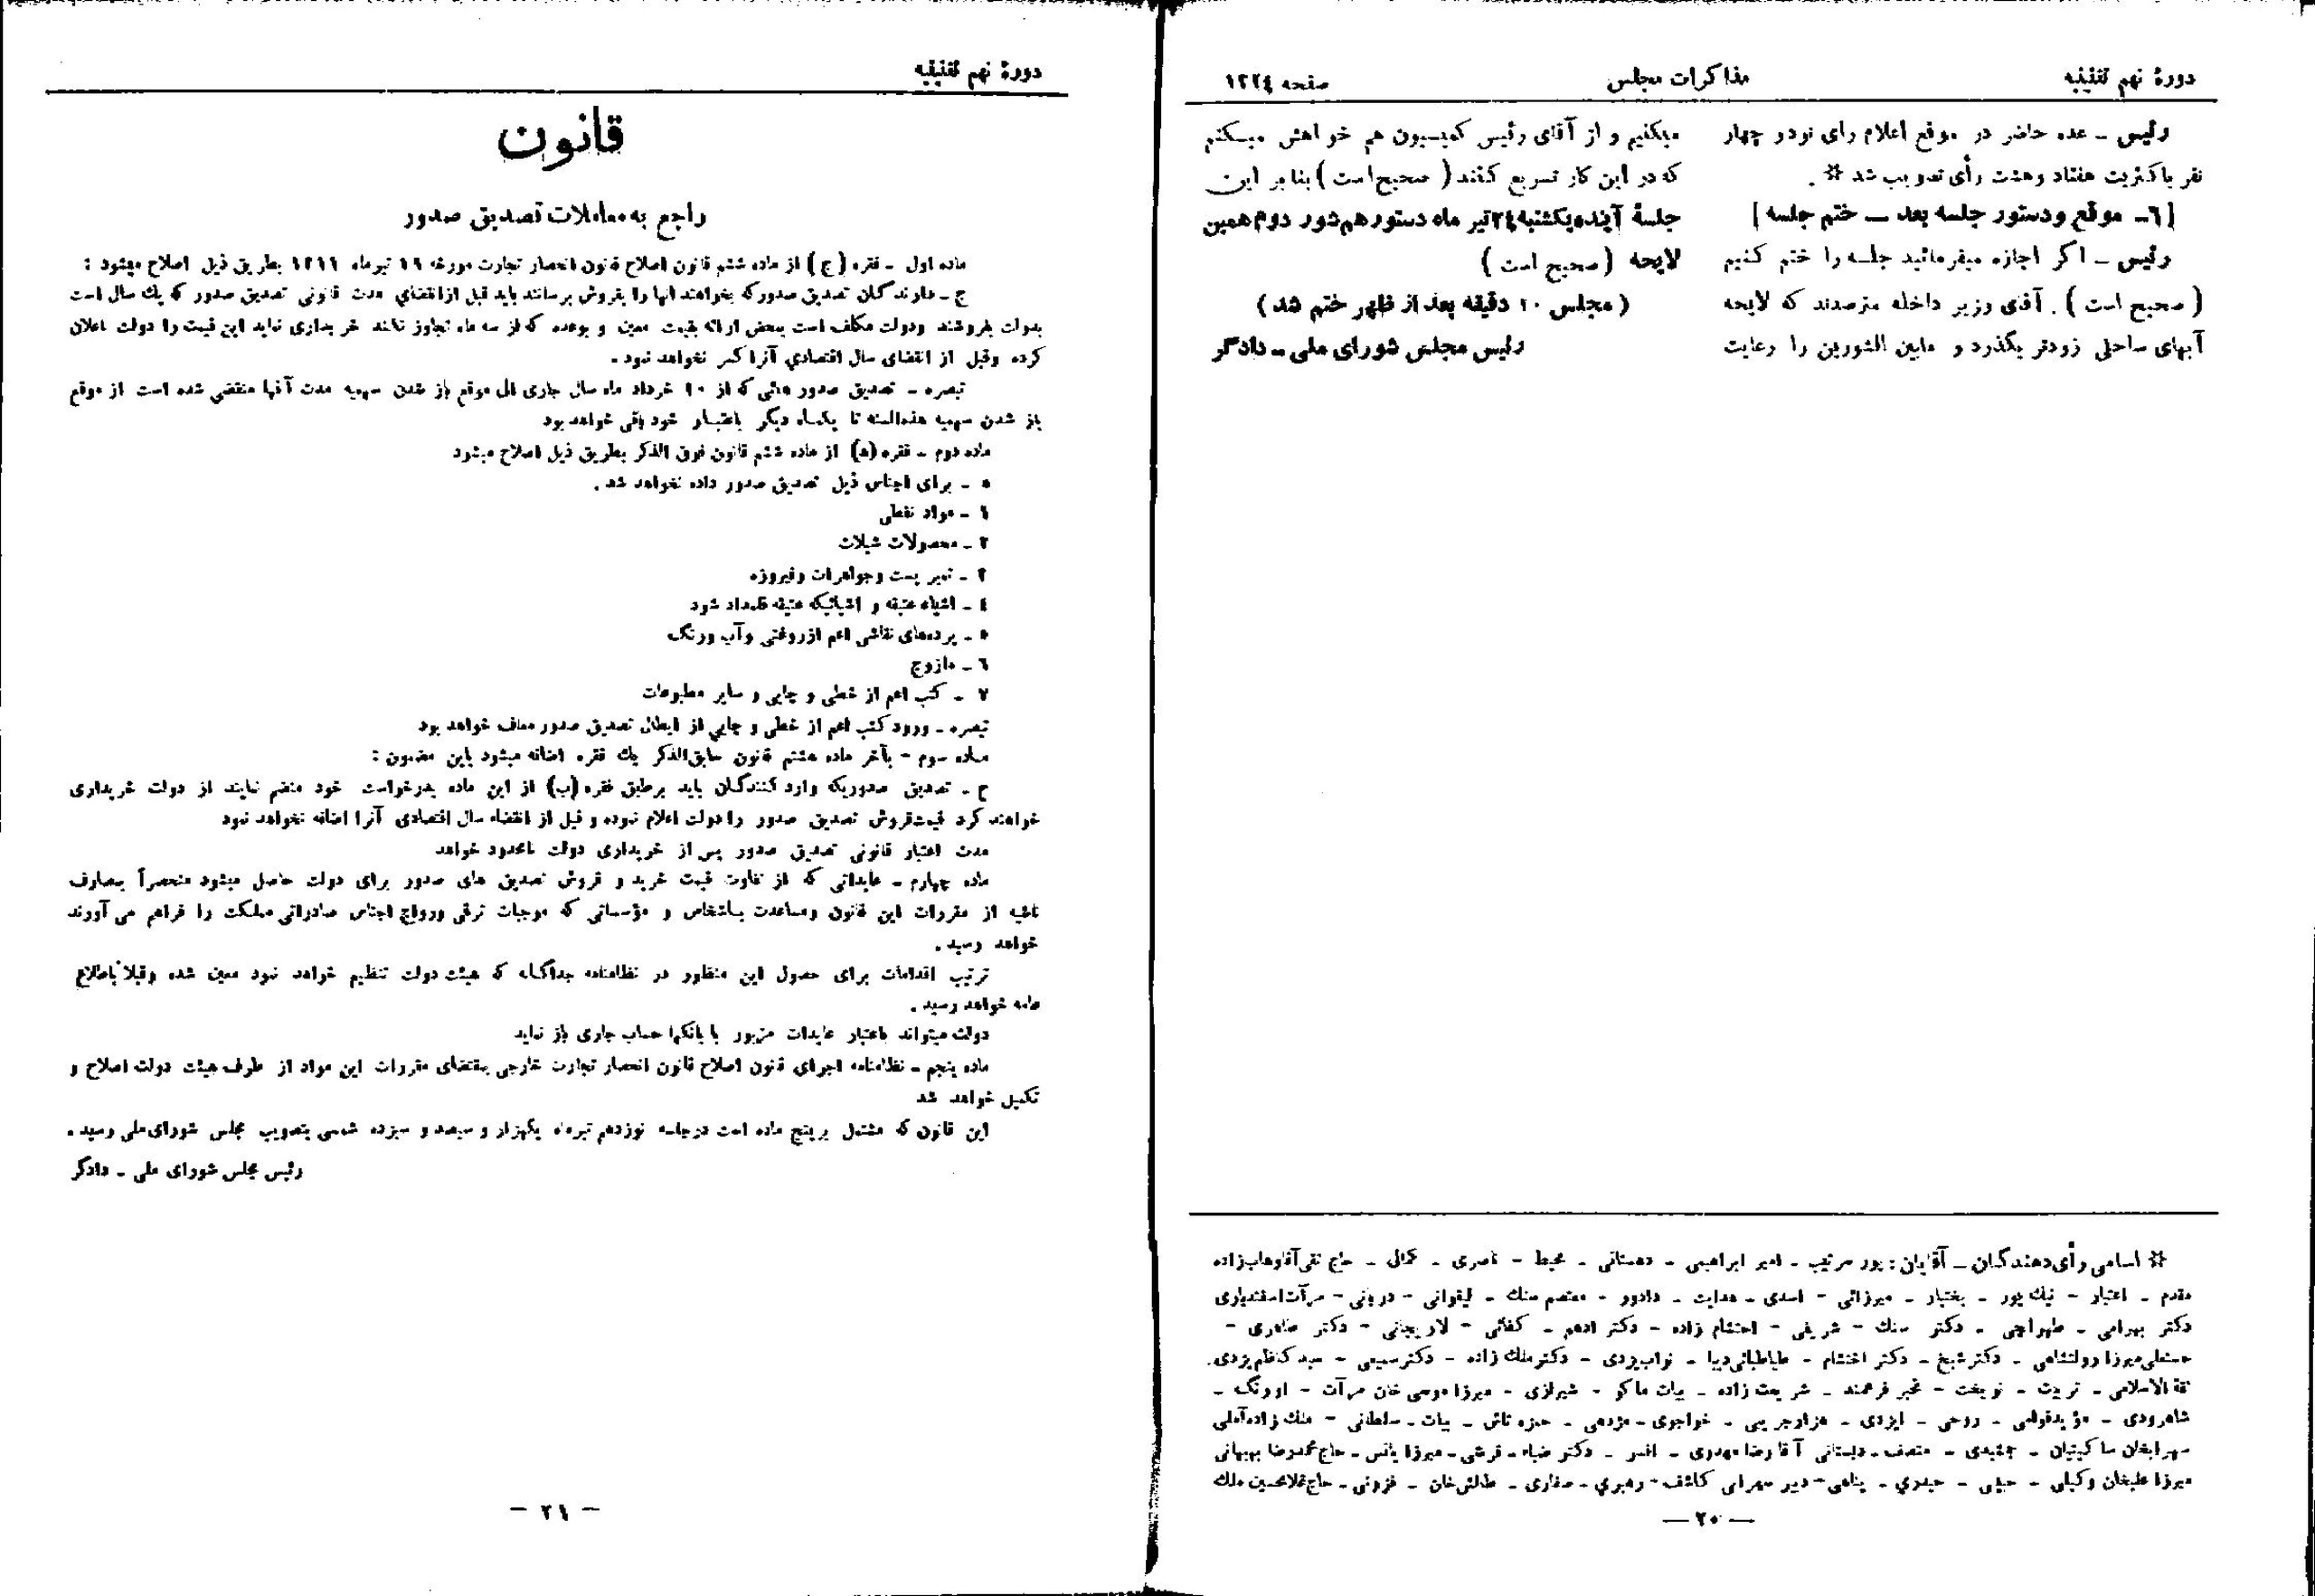 دورهٔ نهم تقنینیه
مذاکرات مجلس
صفحه ۱۲۲٤
رئیس ـ عده حاضر در موقع اعلام رای نود و چهار
نفر باکثریت هفتاد و هشت رأی تصویب شد *.
[٦ـ موقع و دستور جلسه بعد ــ ختم جلسه]
رئیس ـ اگر اجازه میفرمائید جلسه را ختم کنیم
(صحیح است). آقای وزیر داخله مترصدند که لایحه
آبهای ساحلی زودتر بگذرد و مابین الشورین را رعایت
میکنیم و از آقای رئیس کمیسیون هم خواهش میکنم
که در این کار تسریع کنند (صحیح است) بنابر این
جلسهٔ آینده یکشنبه ۲٤ تیر ماه دستور هم شور دوم همین
لایحه (صحیح است)
(مجلس ۱۰ دقیقه بعد از ظهر ختم شد)
رئیس مجلس شورای ملی ـ دادگر
* اسامی رأی دهندگان ـ آقایان: پور مرتیب ـ امیر ابراهیمی ـ دهستانی ـ محیط ـ ناصری ـ کمال ـ حاج تقی آقا وهاب‌زاده
مقدم ـ اعتبار ـ نیك پور ـ بختیار ـ میرزائی ـ اسدی ـ هدایت ـ دادور ـ معتصم سنك ـ لیقوانی ـ دربانی ـ مرآت اسفندیاری
دکتر بهرامی ـ طهرانچی ـ دکتر سنك ـ شریفی ـ احتشام زاده ـ دکتر ادهم ـ کفائی ـ لاریجانی ـ دکتر طاهری ـ
حسنعلی میرزا دولتشاهی ـ دکتر شیخ ـ دکتر احتشام ـ طباطبائی دیبا ـ نواب یزدی ـ دکتر ملك زاده ـ دکتر سمیعی ـ سید کاظم یزدی.
ثقة‌الاسلامی ـ تربیت ـ نوبخت ـ مخبر فرهمند ـ شریعت زاده ـ بیات ماکو ـ شیرازی ـ میرزا موسی خان مرآت ـ اورنگ ـ
شاهرودی ـ مؤید قوامی ـ روحی ـ ایزدی ـ هزارجریبی ـ خواجوی ـ مژدهی ـ حمزه تاش ـ بیات ـ سلطانی ـ ملك زاده آملی
سهرابخان ساگینیان ـ جمشیدی ـ منصف ـ دبستانی آقا رضا مهدوی ـ افسر ـ دکتر ضیاء ـ قرشی ـ میرزا یانس ـ حاج محمد رضا بهبهانی
میرزا علیخان وکیلی ـ حبیبی ـ حیدری ـ پناهی ـ دبیر سهرابی کاشف ـ رهبری ـ صفاری ـ طالش خان ـ فزونی ـ حاج غلامحسین ملك
— ۲۰ —
دورهٔ نهم تقنینیه
قانون
راجع به معاملات تصدیق صدور
ماده اول ـ فقره (ج) از ماده ششم قانون اصلاح قانون انحصار تجارت مورخه ۱۹ تیرماه ۱۳۱۱ بطریق ذیل اصلاح میشود:
ج ـ دارندگان تصدیق صدور که بخواهند آنها را بفروش برسانند باید قبل از انقضای مدت قانونی تصدیق صدور که یك سال است
بدولت بفروشند و دولت مکلف است بمحض ارائه بقیمت معین و بوعده که از سه ماه تجاوز نکند خریداری نماید این قیمت را دولت اعلان
کرده و قبل از انقضای سال اقتصادی آنرا کسر نخواهد نمود.
تبصره ـ تصدیق صدور هائی که از ۱۰ خرداد ماه سال جاری الی موقع باز شدن سهمیه مدت آنها منقضی شده است از موقع
باز شدن سهمیه هذه‌السنه تا یکماه دیگر باعتبار خود باقی خواهد بود
ماده دوم ـ فقره (ه) از ماده ششم قانون فوق الذکر بطریق ذیل اصلاح میشود
ه ـ برای اجناس ذیل تصدیق صدور داده نخواهد شد.
۱ ـ مواد نفطی
۲ ـ محصولات شیلات
۳ ـ تمبر پست و جواهرات و فیروزه
٤ ـ اشیاء عتیقه و اشیائیکه عتیقه قلمداد شود
٥ ـ پرده‌های نقاشی اعم از روغنی و آب و رنگ
٦ ـ مازوج
۷ ـ کتب اعم از خطی و چاپی و سایر مطبوعات
تبصره ـ ورود کتب اعم از خطی و چاپی از ابطال تصدیق صدور معاف خواهد بود
ماده سوم ـ بآخر ماده هشتم قانون سابق‌الذکر یك فقره اضافه میشود باین مضمون:
ح ـ تصدیق صدوریکه وارد کنندگان باید برطبق فقره (ب) از این ماده بدرخواست خود منضم نمایند از دولت خریداری
خواهند کرد قیمت فروش تصدیق صدور را دولت اعلام نموده و قبل از انقضاء سال اقتصادی آنرا اضافه نخواهد نمود
مدت اعتبار قانونی تصدیق صدور پس از خریداری دولت نامحدود خواهد
ماده چهارم ـ عایداتی که از تفاوت قیمت خرید و فروش تصدیق های صدور برای دولت حاصل میشود منحصراً بمصارف
ناشیه از مقررات این قانون و مساعدت باشخاص و مؤسساتی که موجبات ترقی و رواج اجناس صادراتی مملکت را فراهم می آورند
خواهد رسید.
ترتیب اقدامات برای حصول این منظور در نظامنامه جداگانه که هیئت دولت تنظیم خواهد نمود معین شده و قبلا باطلاع
عامه خواهد رسید.
دولت میتواند باعتبار عایدات مزبور با بانکها حساب جاری باز نماید
ماده پنجم ـ نظامنامه اجرای قانون اصلاح قانون انحصار تجارت خارجی بمقتضای مقررات این مواد از طرف هیئت دولت اصلاح و
تکمیل خواهد شد
این قانون که مشتمل بر پنج ماده است در جلسه نوزدهم تیرماه یکهزار و سیصد و سیزده شمسی بتصویب مجلس شورای ملی رسید.
رئیس مجلس شورای ملی ـ دادگر
— ۲۱ —